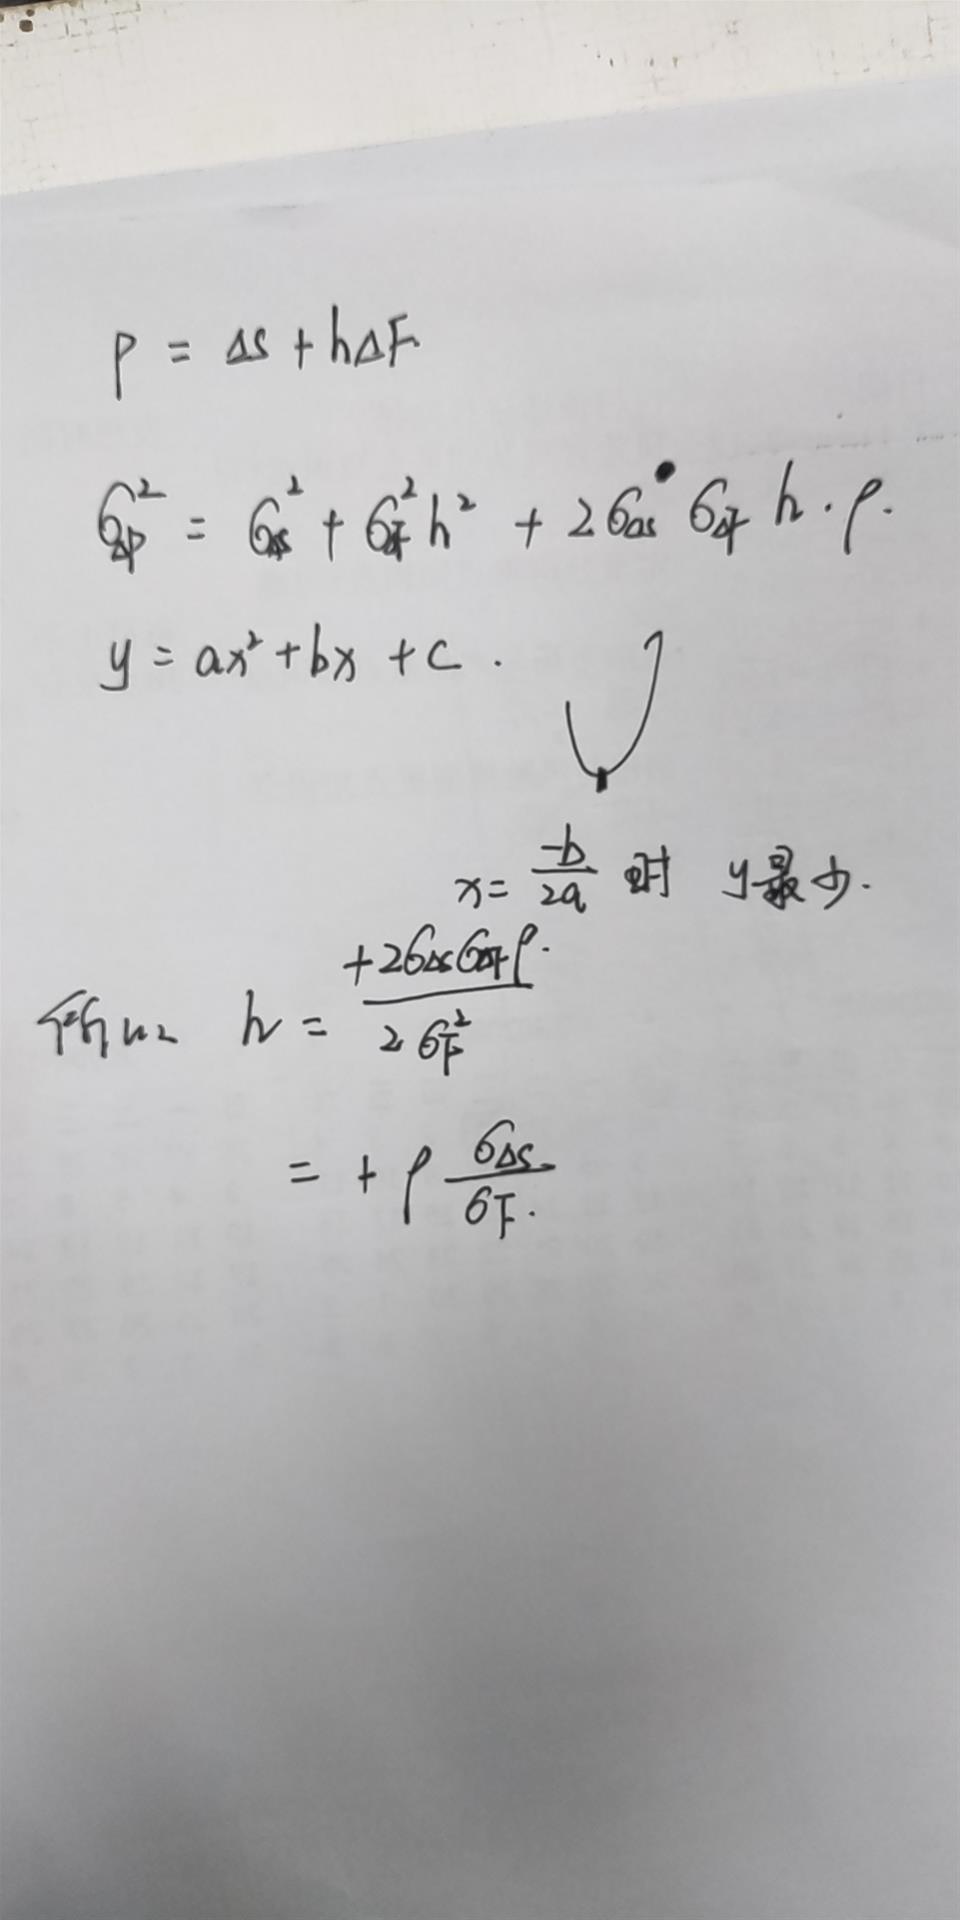 P = ΔS + hΔF
σ²ΔP = σ²ΔS + σ²ΔF h² + 2σΔS σΔF h · ρ.
y = ax² + bx + c.
x = -b/2a 时 y最小.
所以 h = +2σΔSσΔFρ./2σ²F
= + ρ σΔS/σF.